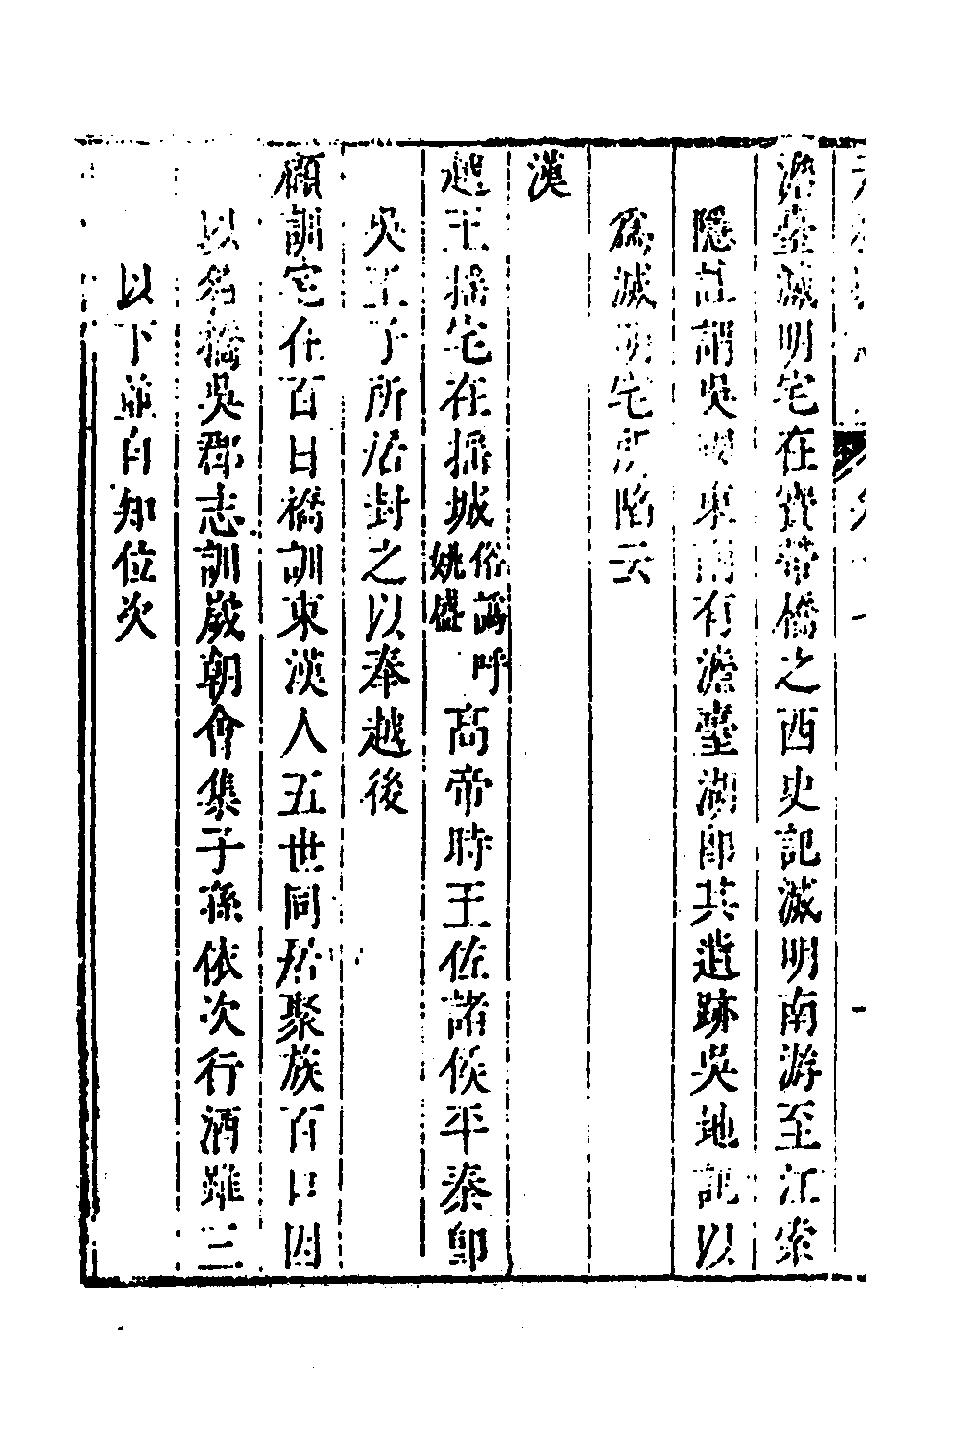 澹臺滅明宅在寶帶橋之西史記滅明南游至江索
隱註謂吳國東南有澹臺湖即其遺跡吳地記以
為滅明宅所陷云
漢
越王摇宅在摇城俗譌呼姚盛高帝時王佐諸侯平秦即
吳王子所居封之以奉越後
顧訓宅在百口橋訓東漢人五世同居聚族百口因
以名橋吳郡志訓嵗朝會集子孫依次行酒雖三
以下並自知位次